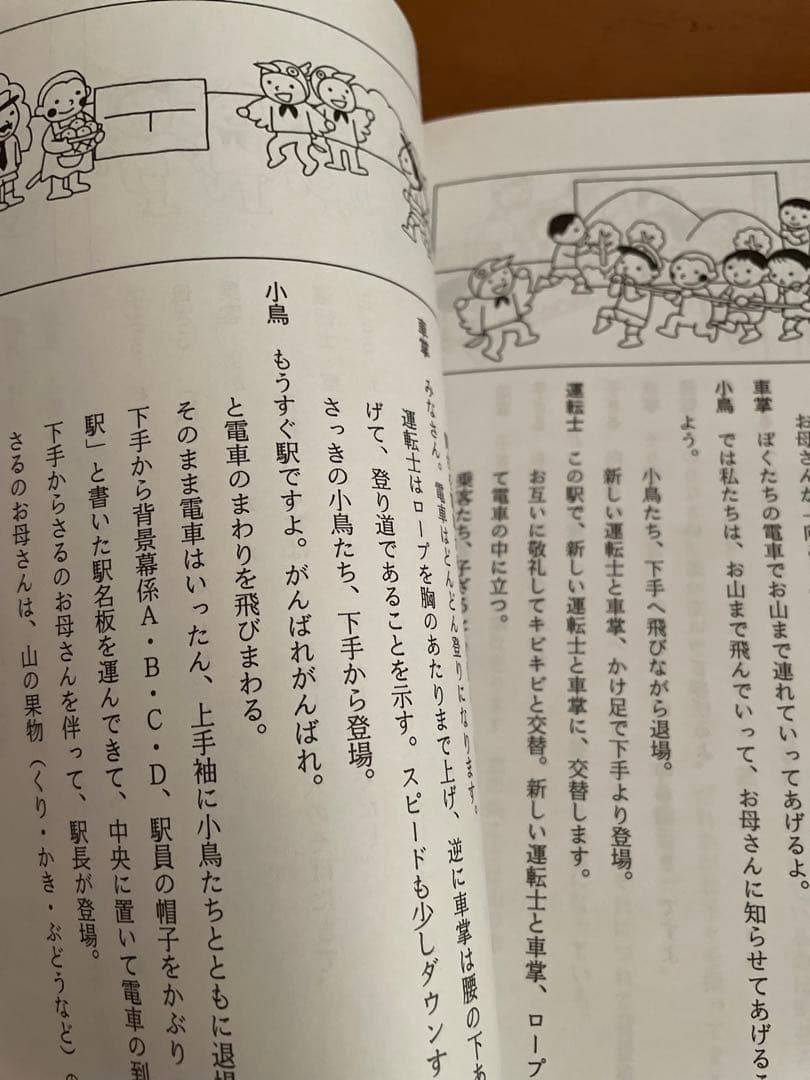 お母さんが
車掌　ぼくたちの電車でお山まで連れていってあげるよ。
小鳥　では私たちは、お山まで飛んでいって、お母さんに知らせてあげるこ
よう。
小鳥たち、下手へ飛びながら退場。
新しい運転士と車掌、かけ足で下手より登場。
運転士　この駅で、新しい運転士と車掌に、交替します。
お互いに敬礼してキビキビと交替。新しい運転士と車掌、ロープ
て電車の中に立つ。
乗客たち、
車掌　みなさん。電車はどんどん登りになります。
運転士はロープを胸のあたりまで上げ、逆に車掌は腰の下あ
げて、登り道であることを示す。スピードも少しダウンす
さっきの小鳥たち、下手から登場。
小鳥　もうすぐ駅ですよ。がんばれがんばれ。
と電車のまわりを飛びまわる。
そのまま電車はいったん、上手袖に小鳥たちとともに退場
下手から背景幕係A・B・C・D、駅員の帽子をかぶり
駅」と書いた駅名板を運んできて、中央に置いて電車の到
下手からさるのお母さんを伴って、駅長が登場。
さるのお母さんは、山の果物（くり・かき・ぶどうなど）の